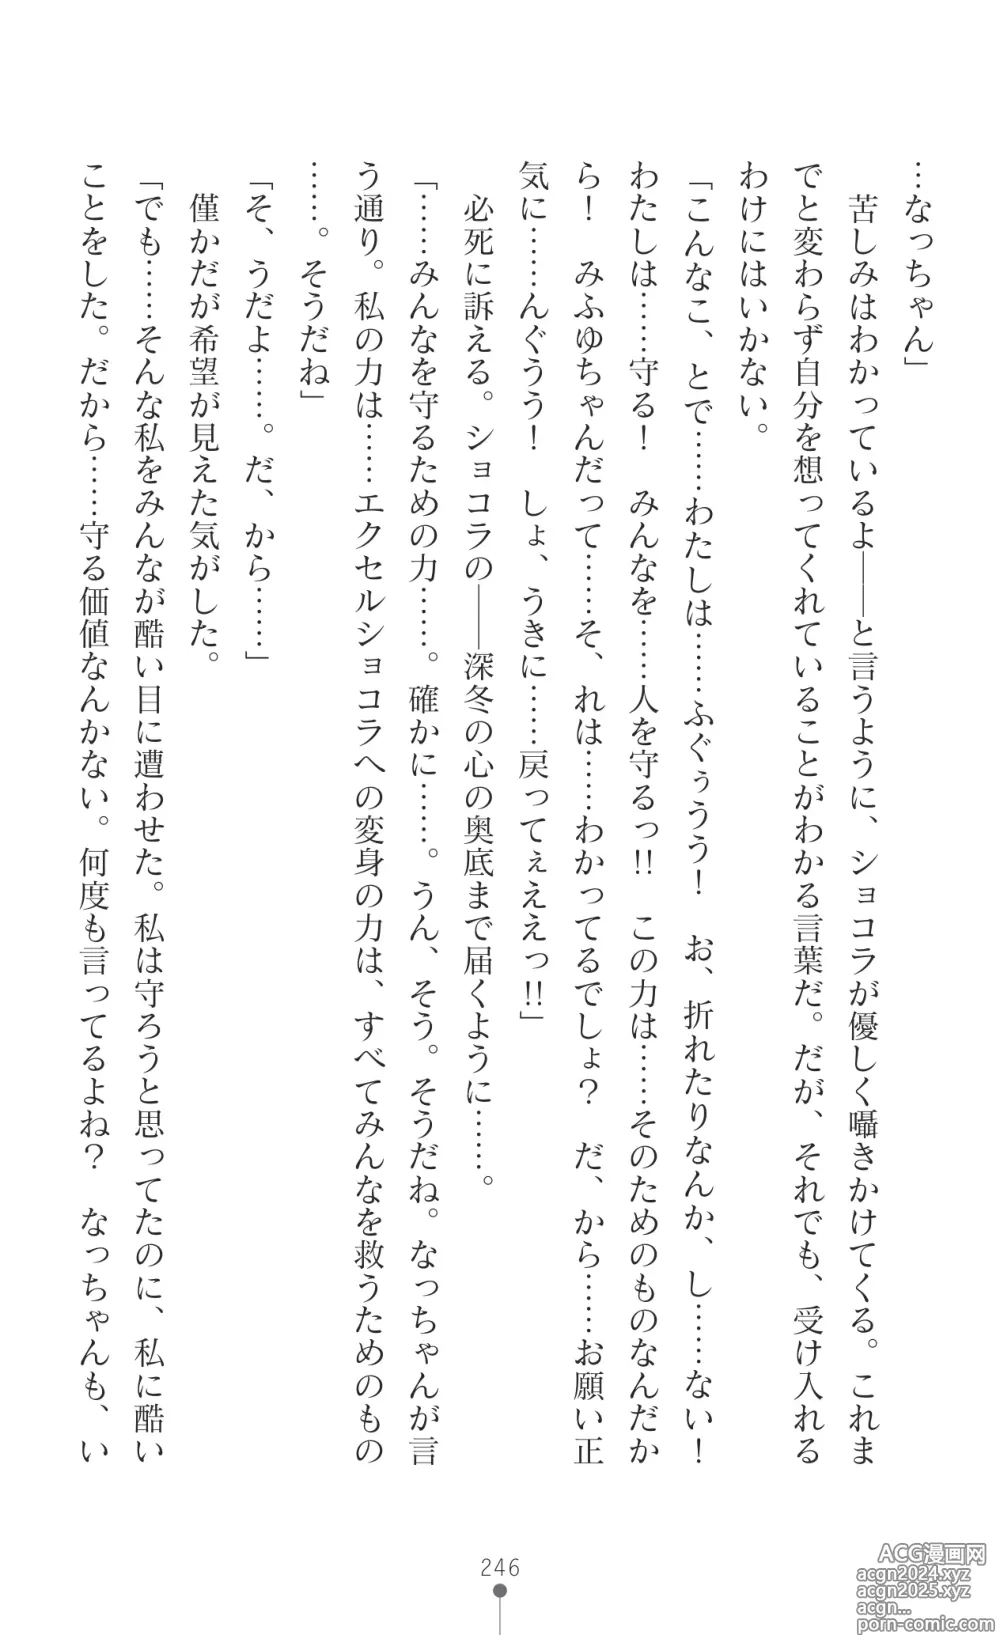 …なっちゃん」
　苦しみはわかっているよ――と言うように、ショコラが優しく囁きかけてくる。これま
でと変わらず自分を想ってくれていることがわかる言葉だ。だが、それでも、受け入れる
わけにはいかない。
「こんなこ、とで……わたしは……ふぐぅうう！　お、折れたりなんか、し……ない！
わたしは……守る！　みんなを……人を守るっ!!　この力は……そのためのものなんだか
ら！　みふゆちゃんだって……そ、れは……わかってるでしょ？　だ、から……お願い正
気に……んぐうう！　しょ、うきに……戻ってぇええっ!!」
　必死に訴える。ショコラの――深冬の心の奥底まで届くように……。
「……みんなを守るための力……。確かに……。うん、そう。そうだね。なっちゃんが言
う通り。私の力は……エクセルショコラへの変身の力は、すべてみんなを救うためのもの
……。そうだね」
「そ、うだよ……。だ、から……」
　僅かだが希望が見えた気がした。
「でも……そんな私をみんなが酷い目に遭わせた。私は守ろうと思ってたのに、私に酷い
ことをした。だから……守る価値なんかない。何度も言ってるよね？　なっちゃんも、い
246
ACG漫画网
acgn2024.xyz
acgn2025.xyz
acgn...
porn-comic.com